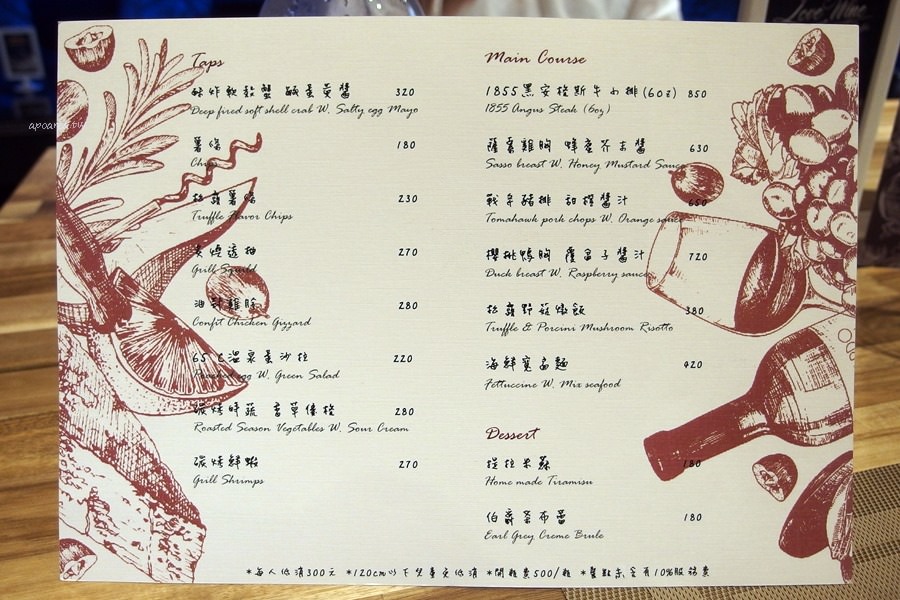 Love Wine
apoanea.tw
Taps
酥炸軟殼蟹 鹹蛋黃醬 320
Deep fired soft shell crab W. Salty egg Mayo
薯條 180
Chips
松露薯條 230
Truffle Flavor Chips
炙燒透抽 270
Grill Squild
油封雞胗 280
Confit Chicken Gizzard
65℃溫泉蛋沙拉 220
Poached egg W. Green Salad
碳烤時蔬 香草優格 280
Roasted Season Vegetables W. Sour Cream
碳烤鮮蝦 270
Grill Shrimps
Main Course
1855黑安格斯牛小排(6oz) 850
1855 Angus Steak (6oz)
薩索雞胸 蜂蜜芥末醬 630
Sasso breast W. Honey Mustard Sauce
戰斧豬排 甜橙醬汁 650
Tomahawk pork chops W. Orange sauce
櫻桃鴨胸 覆盆子醬汁 720
Duck breast W. Raspberry sauce
松露野菇燉飯 380
Truffle & Porcini Mushroom Risotto
海鮮寬扁麵 420
Fettuccine W. Mix seafood
Dessert
提拉米蘇 180
Home made Tiramisu
伯爵茶布蕾 180
Earl Grey Creme Brule
*每人低消300元 *120cm以下兒童免低消 *開瓶費500/瓶 *餐點未含有10%服務費